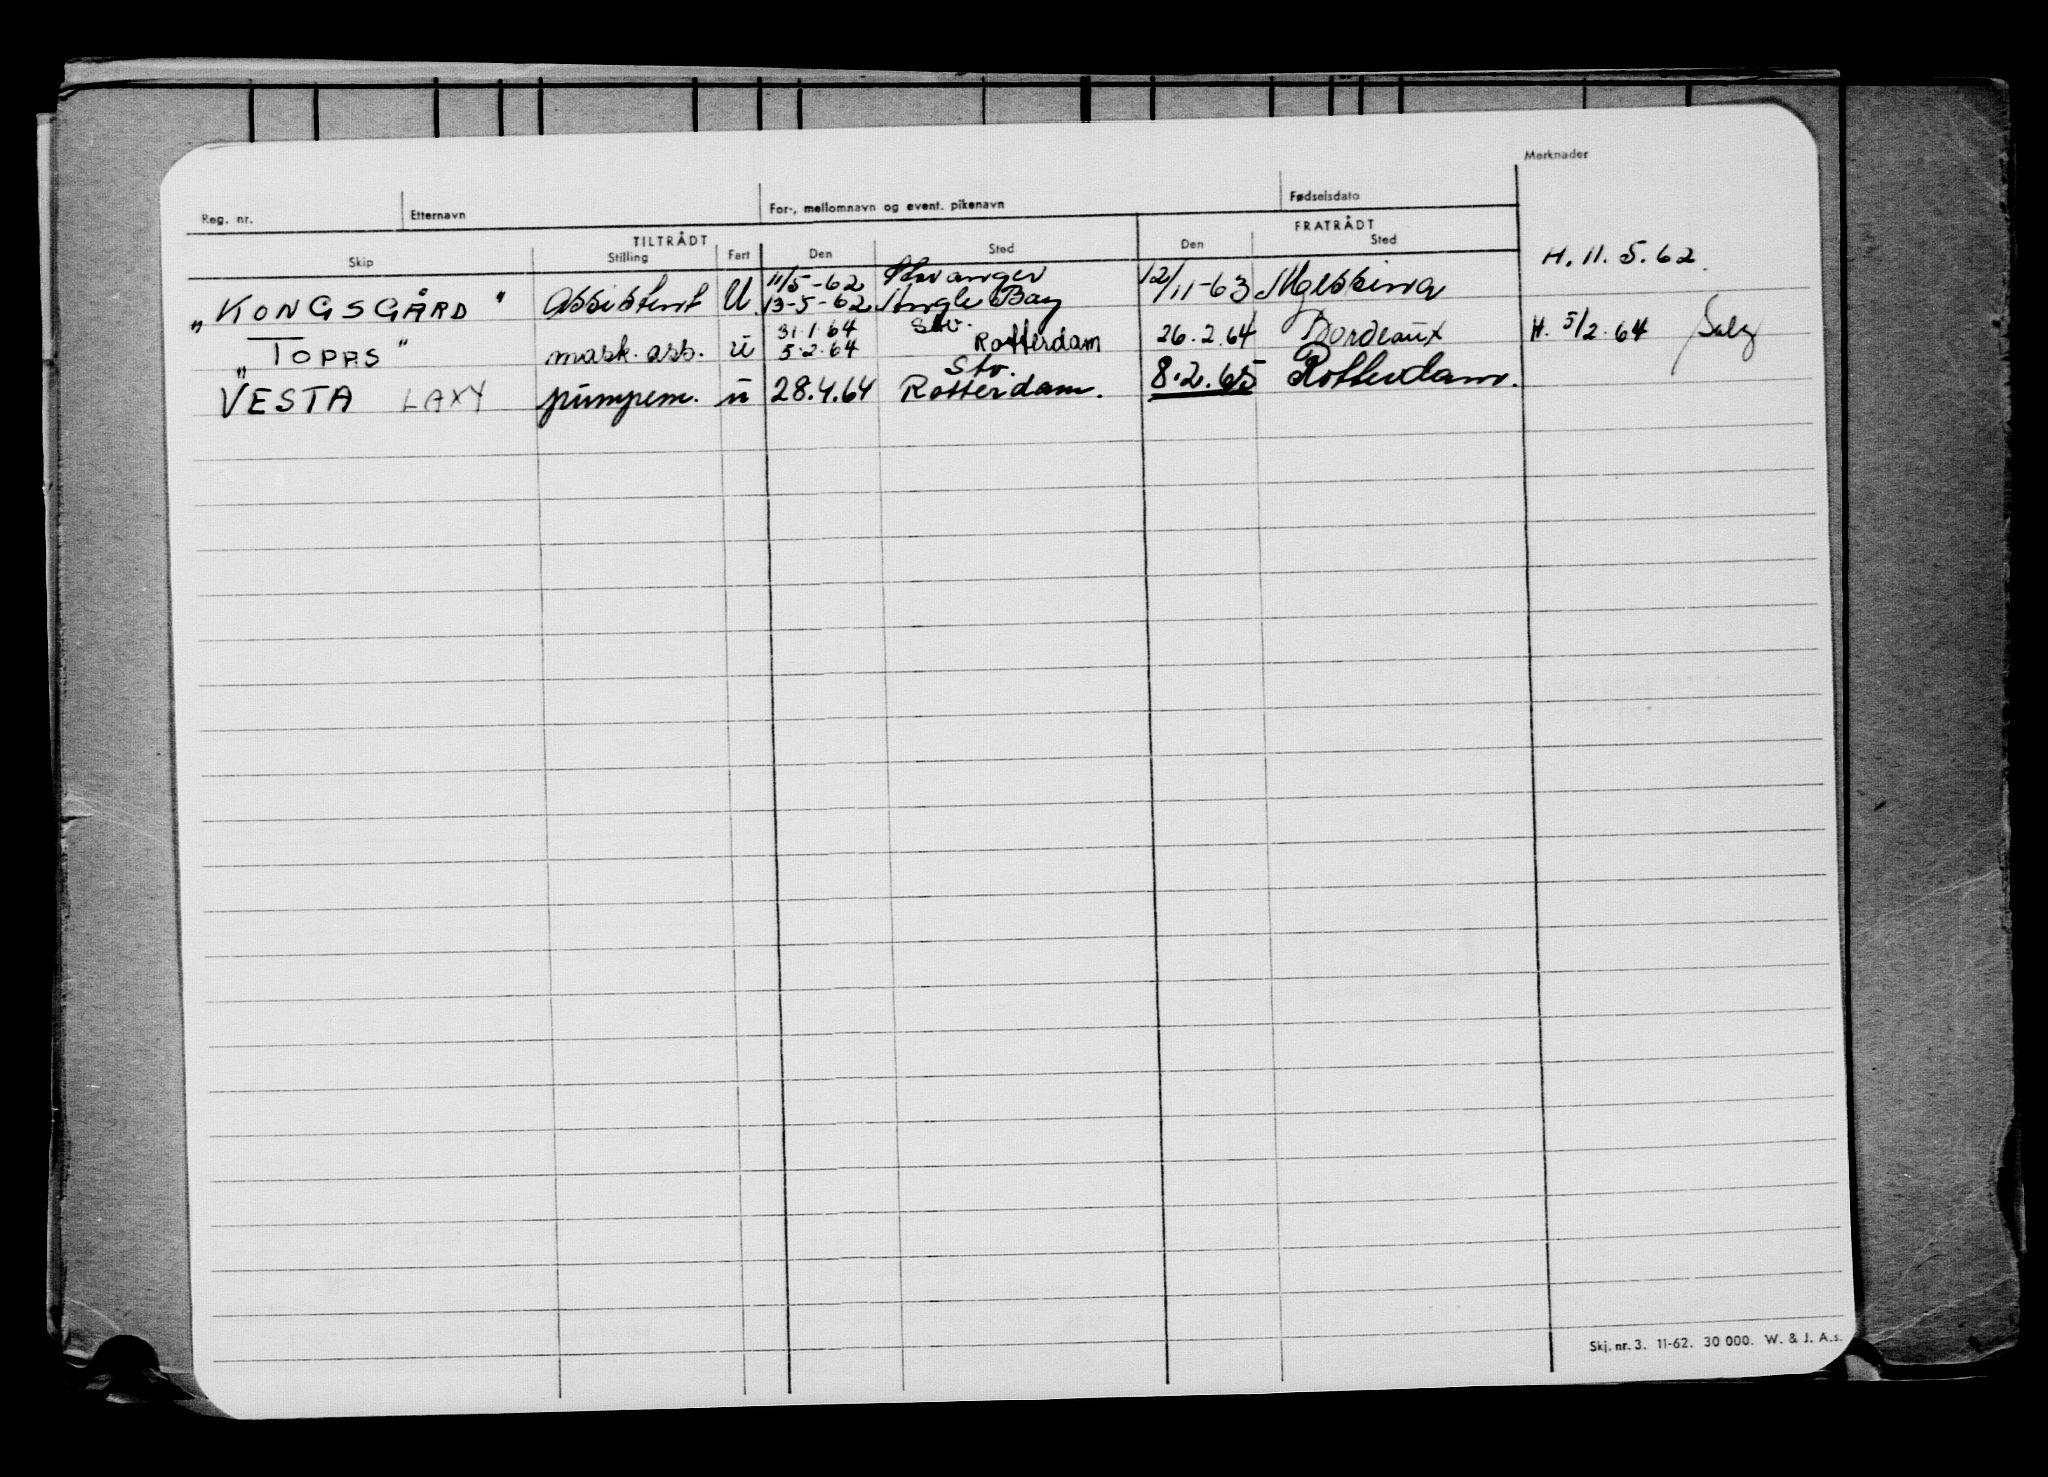 Merknader
Reg. nr. Etternavn For-, mellomnavn og event. pikenavn Fødselsdato
TILTRÅDT FRATRÅDT
Skip Stilling Fart Den Sted Den Sted
H. 11.5.62.
11/5-62 Stavanger
„KONGSGÅRD" Assistent U. 13-5-62 Angle Bay 12/11-63 Messina
31.1.64 Stv.
„TOPAS" mask. ass. u 5.2.64 Rotterdam 26.2.64 Bordeaux H. 5/2.64
Stv.
VESTA LAXY pumpem. u 28.4.64 Rotterdam. 8.2.65 Rotterdam.
Skj. nr. 3. 11-62. 30 000. W. & J. A.s.